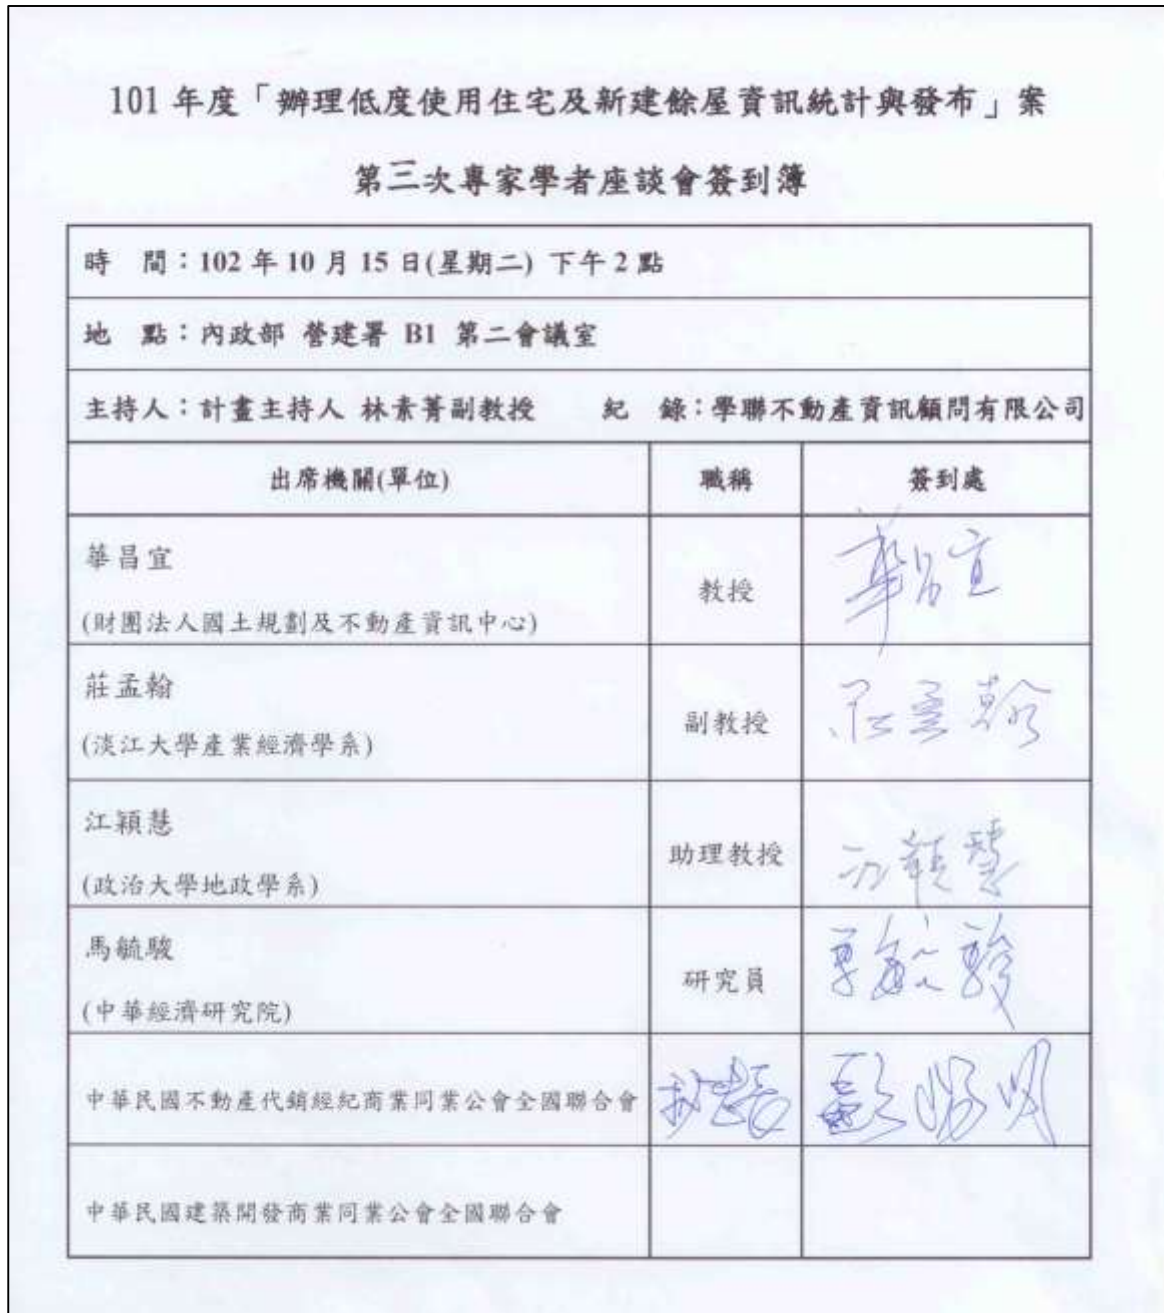 101 年度「辦理低度使用住宅及新建餘屋資訊統計與發布」案
第三次專家學者座談會簽到簿
時 間：102 年 10 月 15 日(星期二) 下午 2 點
地 點：內政部 營建署 B1 第二會議室
主持人：計畫主持人 林素菁副教授 紀 錄：學聯不動產資訊顧問有限公司
出席機關(單位) 職稱 簽到處
華昌宜
(財團法人國土規劃及不動產資訊中心)
教授 華昌宜
莊孟翰
(淡江大學產業經濟學系)
副教授 莊孟翰
江穎慧
(政治大學地政學系)
助理教授 江穎慧
馬毓駿
(中華經濟研究院)
研究員 馬毓駿
中華民國不動產代銷經紀商業同業公會全國聯合會
中華民國建築開發商業同業公會全國聯合會